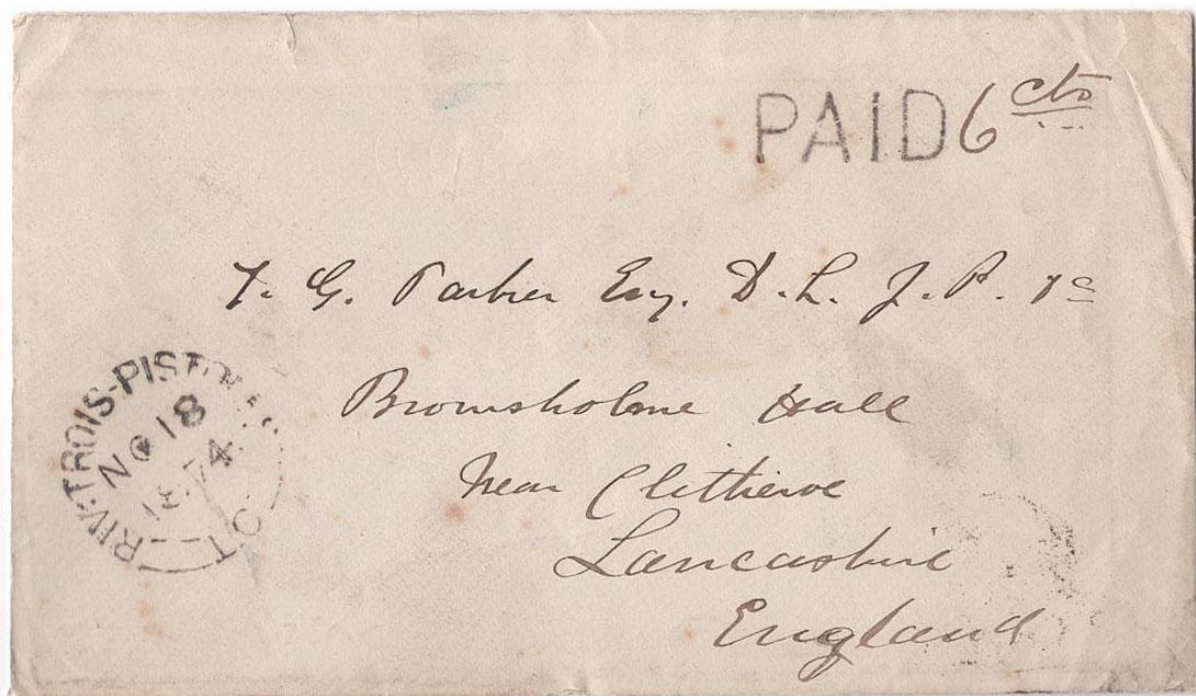 PAID 6 cts
T. G. Parker Esq. D. L. J. P. &c
Browsholme Hall
Near Clitheroe
Lancashire
England
RIV:-TROIS-PISTOLES
NO 18
1874